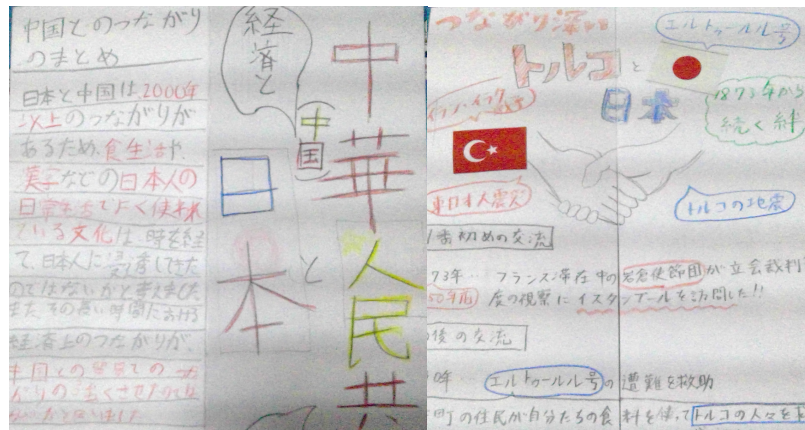 中国とのつながり
のまとめ
日本と中国は、2000年
以上のつながりが
あるため、食生活や、
漢字などの日本人の
日常生活でよく使われ
ている文化は、時を経
て、日本人に浸透してきた
のではないかと考えました
また、その長い時間における
経済上のつながりが、
中国との
経済と
中国
日本
と
中華人民共
つながり深
トルコと
日本
エルトゥールル号
1873年から
続く絆
イラン・イラク
東日本大震災
トルコの地震
番初めの交流
73年‥フランス滞在中の岩倉使節団が立会裁判
50年前
度の視察にイスタンブールを訪問した!!
後の交流
0年‥エルトゥールル号の遭難を救助
町の住民が自分たちの食料を使ってトルコの人々を